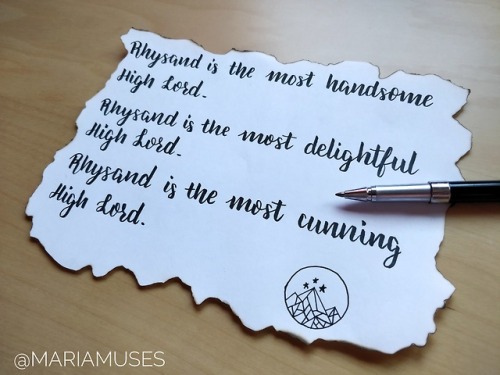 Rhysand is the most handsome
High Lord.
Rhysand is the most delightful
High Lord.
Rhysand is the most cunning
High Lord.
@MARIAMUSES